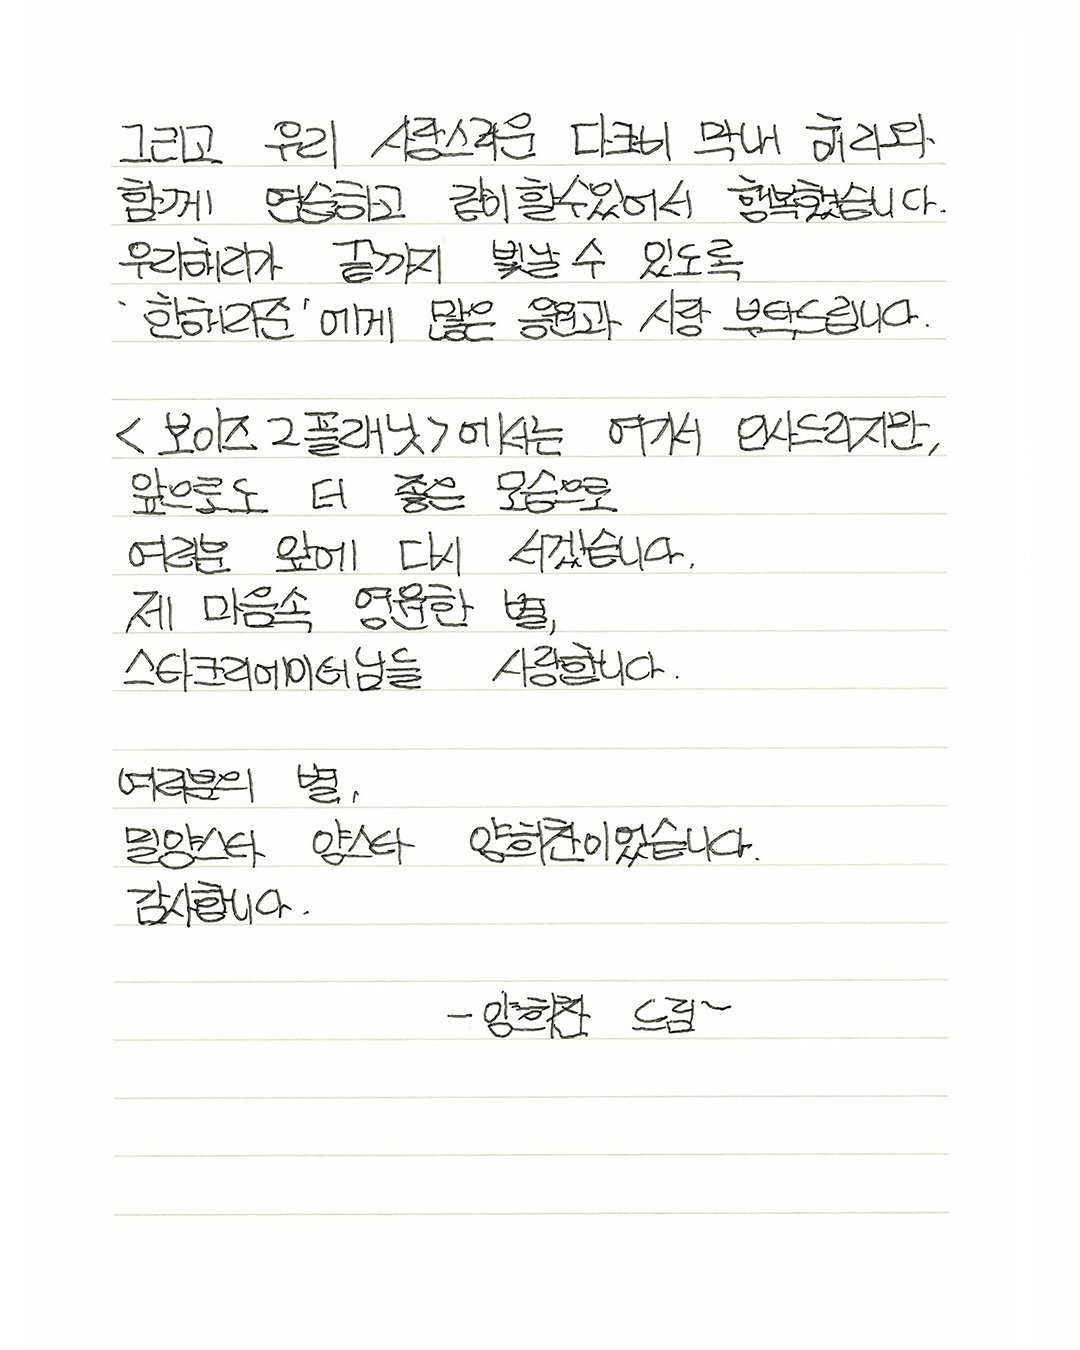 그리고 우리 사랑스러운 다크비 막내 해리와
함께 연습하고 같이 할수있어서 행복했습니다.
우리해리가 끝까지 빛날 수 있도록
'한해리준'에게 많은 응원과 사랑 부탁드립니다.
<보이즈 2 플래닛>에서는 여기서 인사드리지만,
앞으로도 더 좋은 모습으로
여러분 앞에 다시 서겠습니다.
제 마음속 영원한 별,
스타크리에이터님들 사랑합니다.
여러분의 별,
밀양스타 양스타 양희찬이었습니다.
감사합니다.
- 양희찬 드림~